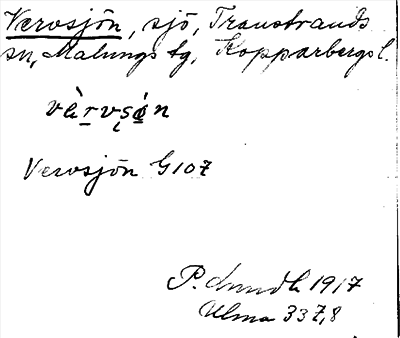 Vervsjön, sjö, Transtrands
sn, Malungs tg, Kopparbergs l.
vèrvsøn
Vervsjön G107
P. Lundh 1917
Ulma 337,8